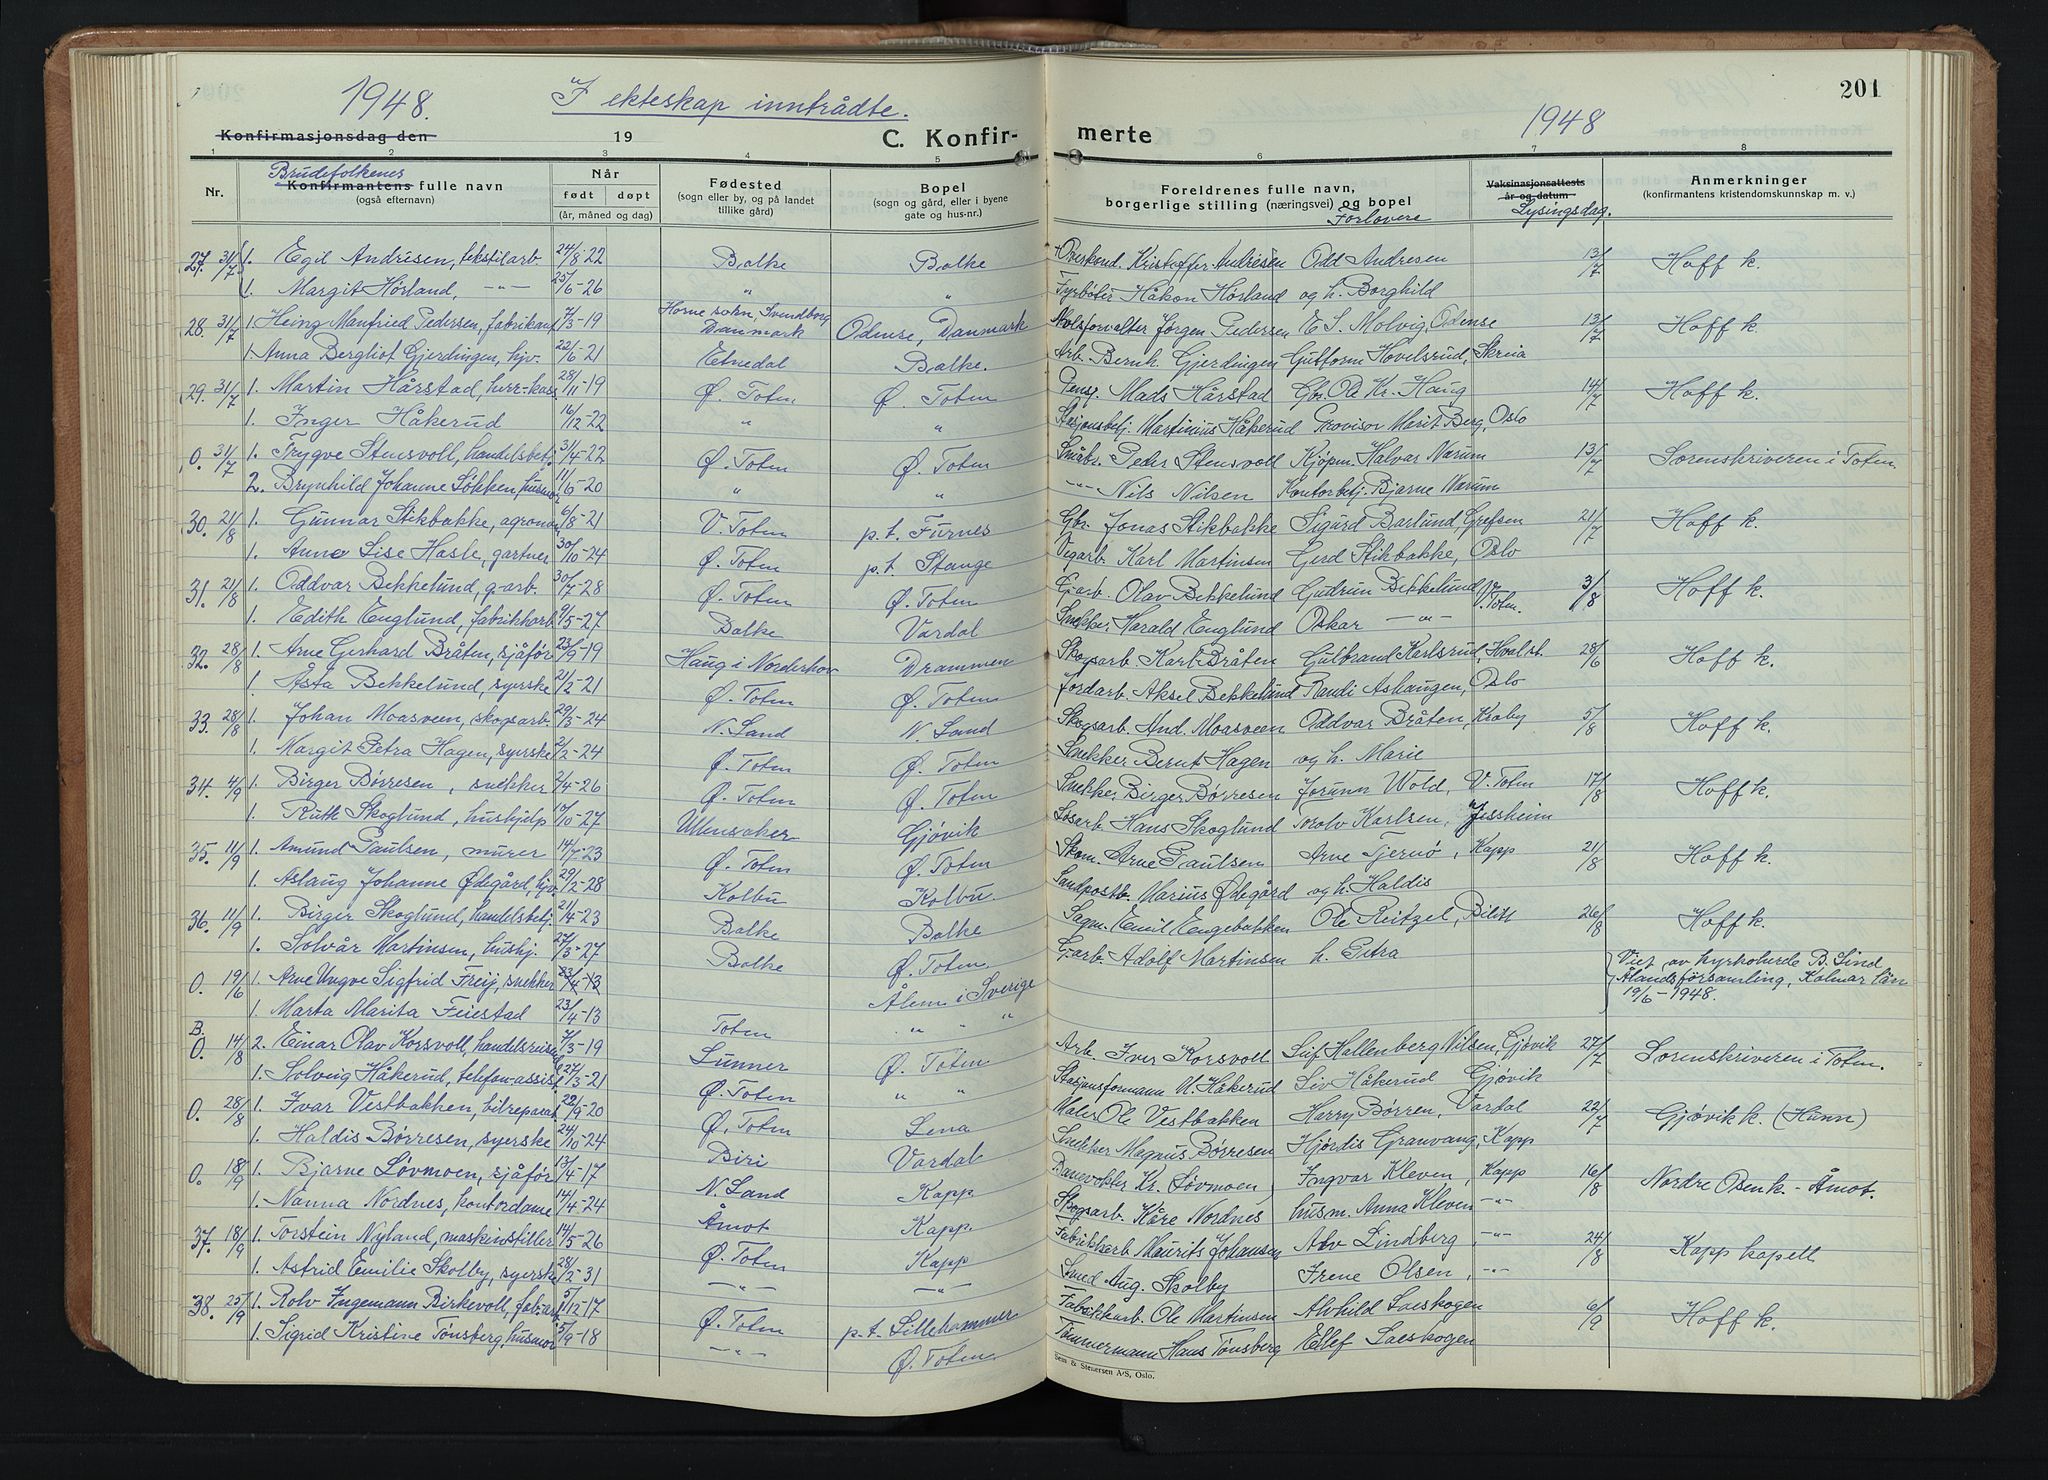 1948. I ekteskap inntrådte. 201
Konfirmasjonsdag den 19 C. Konfirmerte 1948
1 2 3 4 5 6 7 8
Nr. Brudefolkenes Konfirmantens fulle navn (også efternavn) Når født døpt (år, måned og dag) Fødested (sogn eller by, og på landet tillike gård) Bopel (sogn og gård, eller i byene gate og hus-nr.) Foreldrenes fulle navn, borgerlige stilling (næringsvei) og bopel Forlovere Vaksinasjonsattests år og datum Lysingsdag. Anmerkninger (konfirmantens kristendomskunnskap m. v.)
27. 31/7 1. Egil Andresen, tekstilarb. 24/8-22 Balke Balke Kristoffer Andresen Odd Andresen 13/7 Hoff k.
1. Margit Hørland, -"- 25/6-26 " " Fyrbøter Håkon Hørland og h. Borghild
28. 31/7 1. Heing Manfried Pedersen, fabrikant 7/3-19 Horne sokn, Svendborg Danmark Odense, Danmark Jørgen Pedersen E. S. Molvig, Odense 13/7 Hoff k.
1. Anna Bergliot Gjerdingen, hjv. 22/6-21 Etnedal Balke. Arb. Bernh. Gjerdingen Guttorm Hovelsrud, Skreia
29. 31/7 1. Martin Hårstad, herr-kass. 28/11-19 Ø. Toten Ø. Toten Pensj. Mads Hårstad Gbr. Ole Kr. Haug 14/7 Hoff k.
1. Inger Håkerud 16/12-22 " " Stasjonsbetj. Martinius Håkerud Provisor Marit Berg, Oslo
0. 31/7 1. Trygve Stensvoll, handelsbetj. 3/4-22 Ø. Toten Ø. Toten Småbr. Peder Stensvoll Kjøpm. Halvar Narum 13/7 Sorenskriveren i Toten
2. Brynhild Johanne Løkken, husmor 11/6-20 " " -"- Nils Nilsen Kontorbetj. Bjarne Narum
30. 21/8 1. Gunnar Stikbakke, agronom 6/8-21 V. Toten p.t. Furnes Gbr. Jonas Stikbakke Sigurd Barlund, Grefsen 21/7 Hoff k.
1. Anne Lise Hasle, gartner 30/10-24 Ø. Toten p.t. Stange Vegarb. Karl Martinsen Gerd Stikbakke, Oslo
31. 21/8 1. Oddvar Bekkelund, g-arb. 30/7-28 Ø. Toten Ø. Toten G-arb. Olav Bekkelund Gudrun Bekkelund, V. Toten. 3/8 Hoff k.
1. Edith Englund, fabrikkarb. 9/5-27 Balke Vardal Snekker Harald Englund Oskar -"-
32. 28/8 1. Arne Gerhard Bråten, sjåfør 23/9-19 Haug i Norderhov Drammen Skogsarb. Karl Bråten Gulbrand Karlsrud, Hvalst. 28/6 Hoff k.
1. Åsta Bekkelund, syerske 21/2-21 Ø. Toten Ø. Toten Jordarb. Aksel Bekkelund Randi Aslaugen, Oslo
33. 28/8 1. Johan Moasveen, skogsarb. 29/3-24 N. Land N. Land Skogsarb. And. Moasveen Oddvar Bråten, Kraby 5/8 Hoff k.
1. Margit Petra Hagen, syerske 2/2-24 Ø. Toten Ø. Toten Snekker Bernt Hagen og h. Marie
34. 4/9 1. Birger Børresen, snekker 2/4-26 Ø. Toten Ø. Toten Snekker Birger Børresen Jorunn Wold, V. Toten 17/8 Hoff k.
1. Ruth Skoglund, hushjelp 10/10-27 Ullensaker Gjøvik Hans Skoglund Torolv Karlsen, Jessheim
35. 11/9 1. Amund Paulsen, murer 14/7-23 Ø. Toten Ø. Toten Skom. Arne Paulsen Arne Tjernø, Kapp 21/8 Hoff k.
1. Aslaug Johanne Ødegård, hjv. 29/2-28 Kolbu Kolbu Landpostb. Marius Ødegård og h. Haldis
36. 11/9 1. Birger Skoglund, handelsbetj. 21/4-23 Balke Balke Sagm. Emil Engebakken Ole Reitzel, Bilitt 26/8 Hoff k.
1. Solvår Martinsen, hushj. 27/3-27 Balke Ø. Toten G-arb. Adolf Martinsen h. Petra
0. 19/6 1. Arne Yngve Sigfrid Freij, snekker 23/4-13 Ålem i Sverige Viet av kyrkoherde B. Lind Ålands församling, Kalmar län 19/6-1948.
1. Marta Marita Feiestad 23/4-13 Toten " " "
B. 0. 14/8 2. Einar Olav Korsvoll, handelsreisende 7/3-19 Lunner Ø. Toten Arb. Iver Korsvoll Leif Hallenberg Nilsen, Gjøvik 27/7 Sorenskriveren i Toten.
1. Solveig Håkerud, telefon-assist. 27/3-21 Ø. Toten " " Stasjonsformann M. Håkerud Liv Håkerud Gjøvik
0. 28/8 1. Ivar Vestbakken, bilreparat. 22/9-20 Ø. Toten Lena Maler Ole Vestbakken Harry Børren, Vardal 22/7 Gjøvik k. (Hunn)
1. Haldis Børresen, syerske 24/10-24 Biri Vardal Snekker Magnus Børresen Hjørdis Granvang, Kapp
0. 18/9 1. Bjarne Løvmoen, sjåfør 13/4-17 N. Land Kapp Banevokter Kr. Løvmoen Ingvar Kleven, Kapp 16/8 Nordre Osen k. - Åmot.
1. Nanna Nordnes, kontordame 14/4-24 Åmot Kapp Skogsarb. Kåre Nordnes husm. Anna Kleven -"-
37. 18/9 1. Torstein Nyland, maskinstiller 14/5-26 Ø. Toten Kapp Fabrikkarb. Maurits Johansen Alv Lindberg, -"- 24/8 Kapp kapell
1. Astrid Emilie Skolby, syerske 28/2-31 -"- -"- Smed Aug. Skolby Irene Olsen, -"-
38. 25/9 1. Rolv Ingemann Birkevoll, fab.arb. 5/12-17 Ø. Toten p.t. Lillehammer Fabrikkarb. Ole Martinsen Alvhild Laeskogen 6/9 Hoff k.
1. Sigrid Kristine Tønsberg, husmor 5/9-18 -"- Ø. Toten Tømmermann Hans Tønsberg Ellef Laeskogen
Sem & Stenersen A/S, Oslo.